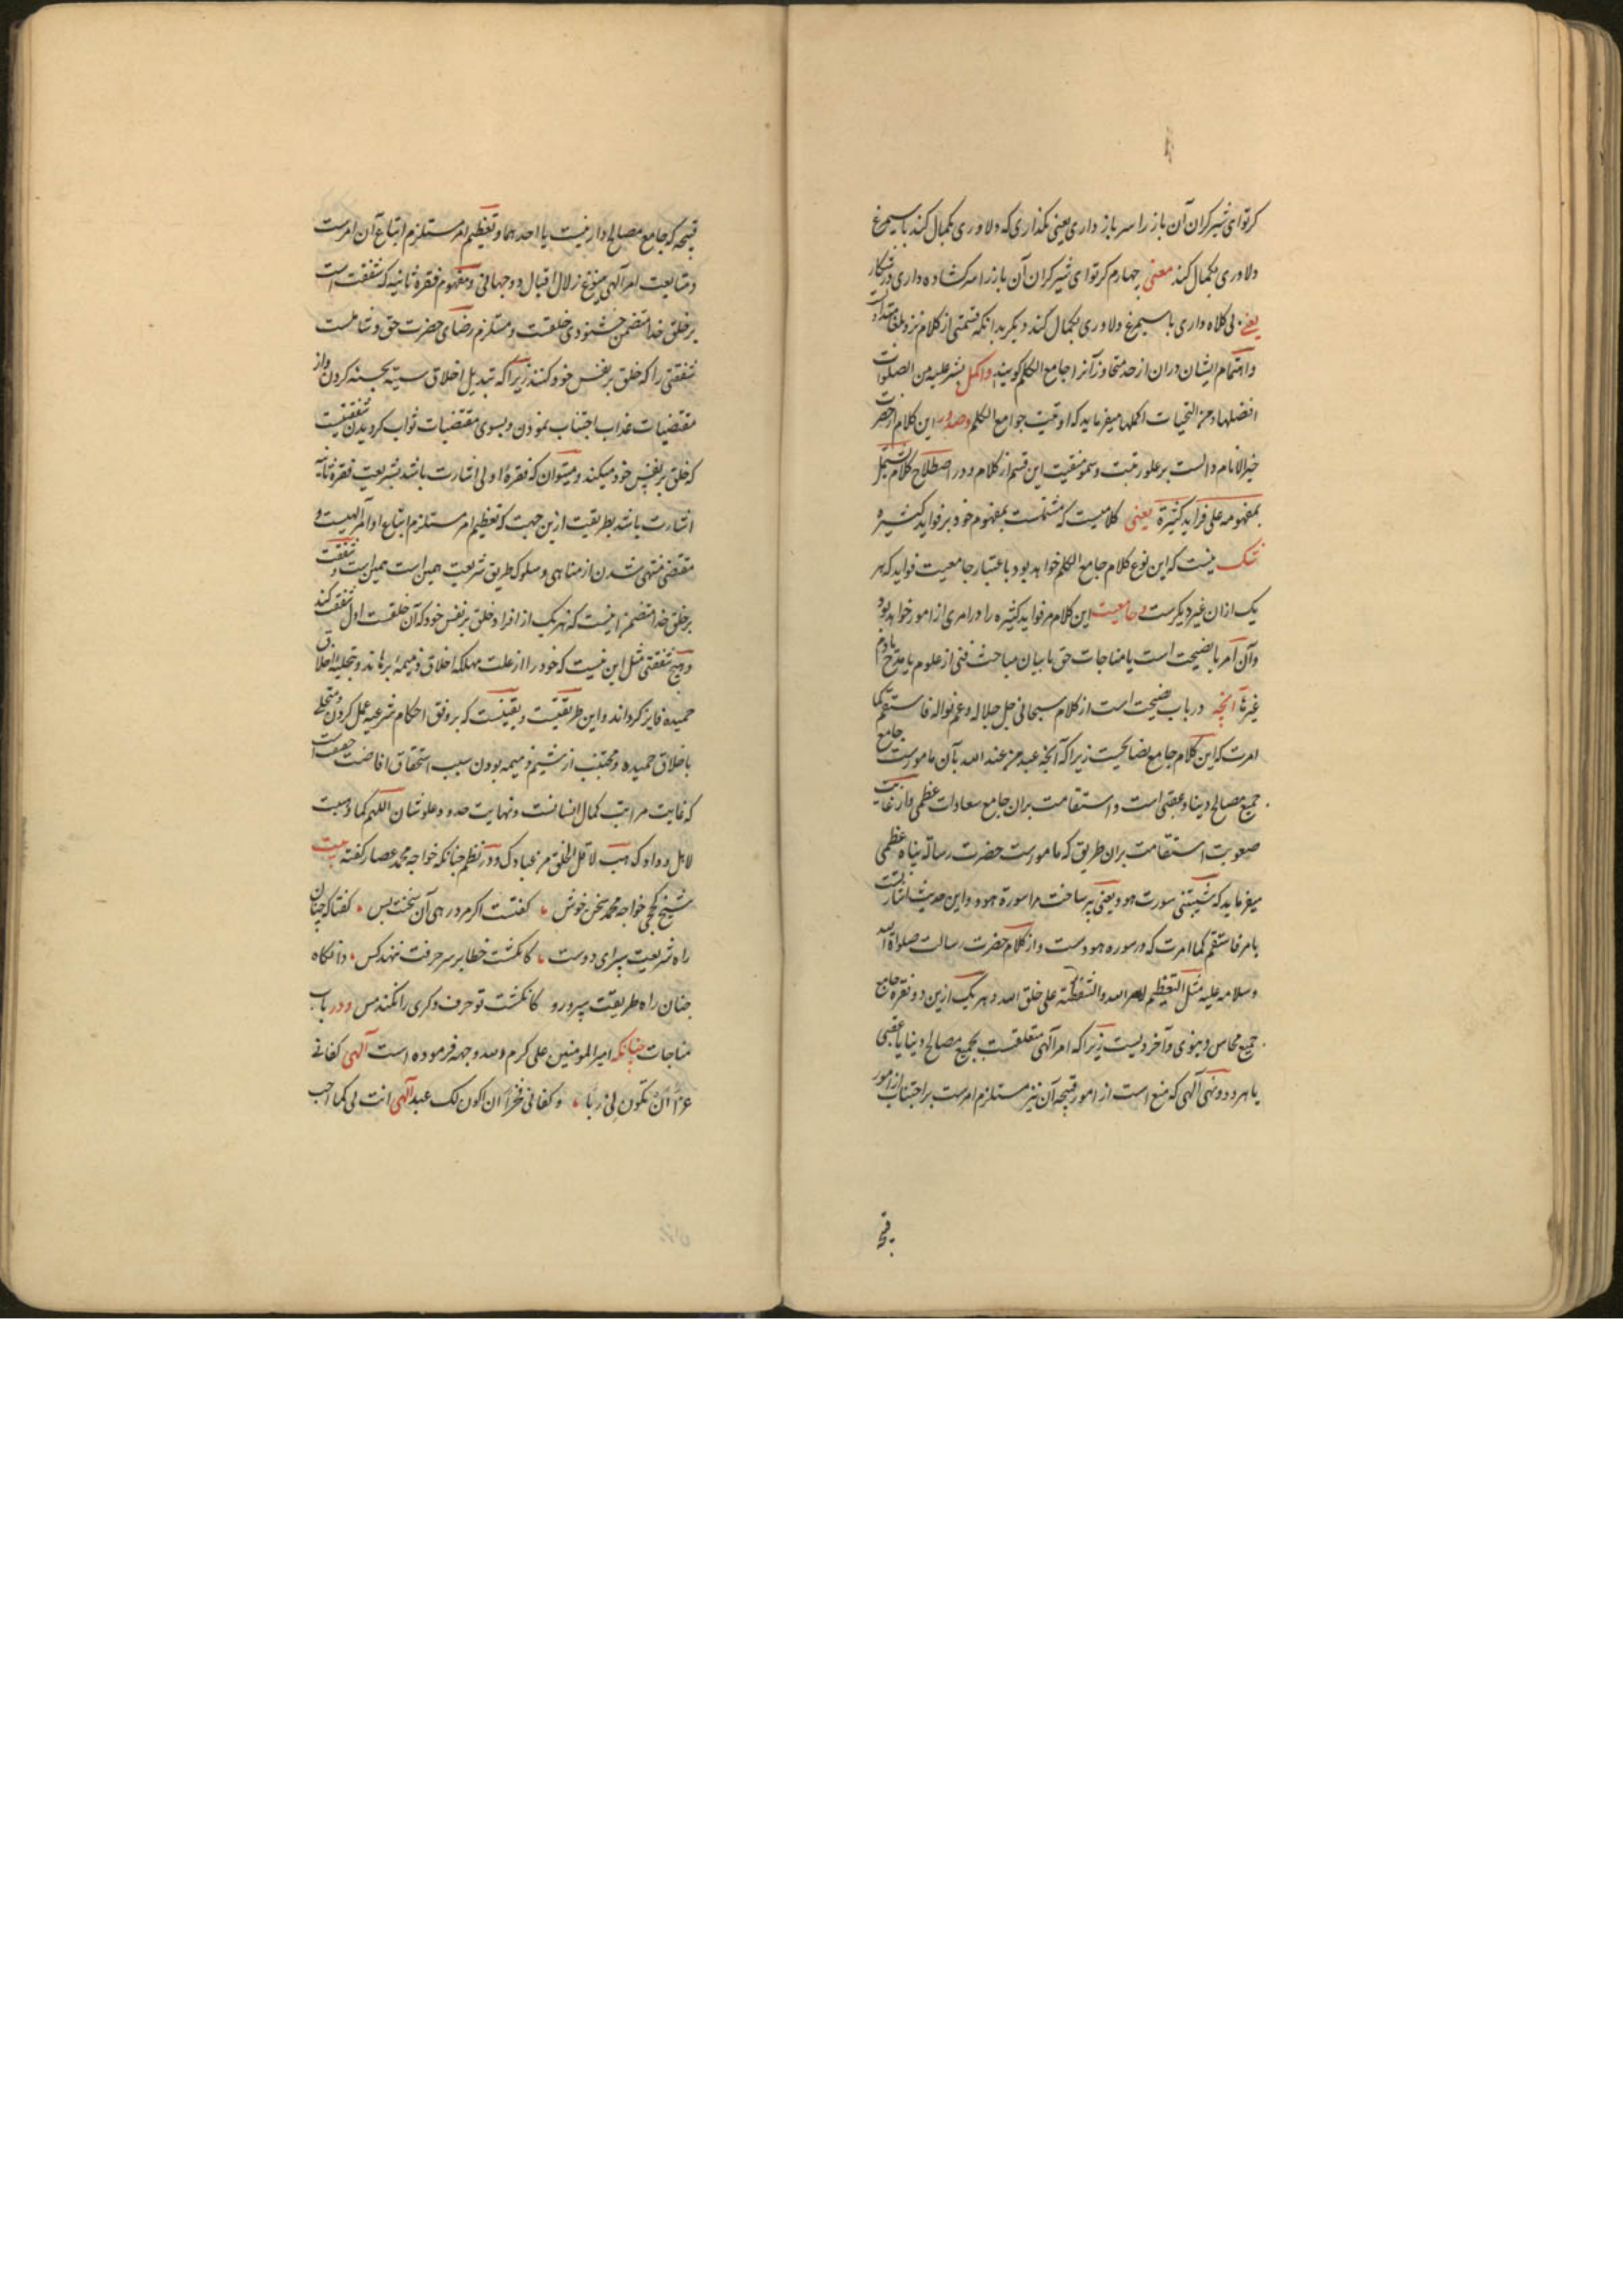 کرتوای شیرکران آن باز را سر باز داری یعنی نکذاری که دلاوری بکمال کند با سیمرغ
دلاوری بکمال کند معنی چهارم کرتوای شیرکران آن باز را سر کشاده داری در شکار
یعنی بی کلاه داری با سیمرغ دلاوری بکمال کند دیکر بدانکه قسمتی از کلام نزد بلغا
واهتمام ایشان دران از حد متجاوز آنرا جامع الکلم کویند و اکمل بشر علیه من الصلوات
افضلها و من التحیات اکملها میفرماید که اوتیت جوامع الکلم و صدور این کلام از حضرت
خیر الانام دالست بر علو رتبت و سمو منقبت این قسم از کلام و در اصطلاح کلام یشتمل
بمفهومه علی فواید کثیرة یعنی کلامیست که مشتملست بمفهوم خود بر فواید کثیره
شک نیست که این نوع کلام جامع الکلم خواهد بود باعتبار جامعیت فواید که هر
یک ازان غیر دیکرست و جامعیت این کلام مر فواید کثیره را در امری از امور خواهد بود
وآن امر با نصیحت است یا مناجات حق یا بیان مباحث فنی از علوم یا مدح یا ذم
غیرها آنچه در باب نصیحت است از کلام سبحانی جل جلاله و عم نواله فاستقم کما
امرت که این کلام جامع نصایحست زیرا که آنچه عبد من عند الله بآن مامورست جامع
جمیع مصالح دنیا و عقبی است و استقامت بران جامع سعادات عظمی و از غایت
صعوبت استقامت بران طریق که مامورست حضرت رسالة پناه عظمی
میفرماید که شیبتنی سورت هود یعنی پیر ساخت مرا سورة هود و این حدیث اشارتست
بامر فاستقم کما امرت که در سوره هودست و از کلام حضرت رسالت صلواة الله
وسلامه علیه مثل التعظیم لامر الله والشفقة علی خلق الله و هر یک ازین دو فقره جامع
جمیع محاسن دنیوی و آخرویست زیرا که امر آلهی متعلقست بجمیع مصالح دنیا یا عقبی
یا هر دو و نهی آلهی که منع است از امور قبیحه آن نیز مستلزم امرست بر اجتناب از امور
قبیحه
قبیحه که جامع مصالح دارینست یا احدهما و تعظیم امر مستلزم اتباع آن امرست
و متابعت امر آلهی ینبوع زلال اقبال دو جهانی و مفهوم فقره ثانیه که شفقت است
بر خلق خدا متضمن خشنودی خلقست و مستلزم رضای حضرت حق و شاملست
شفقتی را که خلق بر نفس خود کنند زیرا که تبدیل اخلاق سیئه بحسنه کردن و از
مقتضیات عذاب اجتناب نمودن و بسوی مقتضیات ثواب کرویدن شفقتیست
که خلق بر نفس خود میکند و میتوان که فقرۀ اولی اشارت باشد بشریعت فقرۀ ثانیه
اشارت باشد بطریقت ازین جهت که تعظیم امر مستلزم اتباع اوامر آلهیست و
مقتضی منتهی شدن از مناهی و سلوک طریق شریعت همین است همین است و شفقت
بر خلق خدا متضمن اینست که هر یک از افراد خلق بر نفس خود که آن خلقست اول شفقت کند
و هیچ شفقتی مثل این نیست که خود را از علت مهلکه اخلاق ذمیمۀ برهاند و بتحلیه اخلاق
حمیده فایز کرداند و این طریقتست و یقینست که بر وفق احکام شرعیه عمل کردن و متحلی
باخلاق حمیده و مجتنب از شیم ذمیمه بودن سبب استحقاق افاضت حقیقت است
که غایت مراتب کمال انسانست و نهایت حد و علو شان اللهم کما وهبت
لاهل وداد که هب لاقل الخلق من عبادک و در نظم چنانکه خواجه محمد عصار کفته بیت
شیخ کججی خواجه محمد سخن خوش ؞ کفتست اکر مرد رهی آن سخنت بس ؞ کفتا که چنان
راه شریعت بسرای دوست ؞ کانکشت خطا بر سر حرفت ننهد کس ؞ وانکاه
چنان راه طریقت بسپر رو کانکشت تو حرف دکری را نکند مس و در باب
مناجات چنانکه امیر المومنین علی کرم الله وجهه فرموده است آلهی کفانی
عزا ان تکون لی ربا ؞ وکفانی فخرا ان اکون لک عبدا آلهی انت لی کما احب